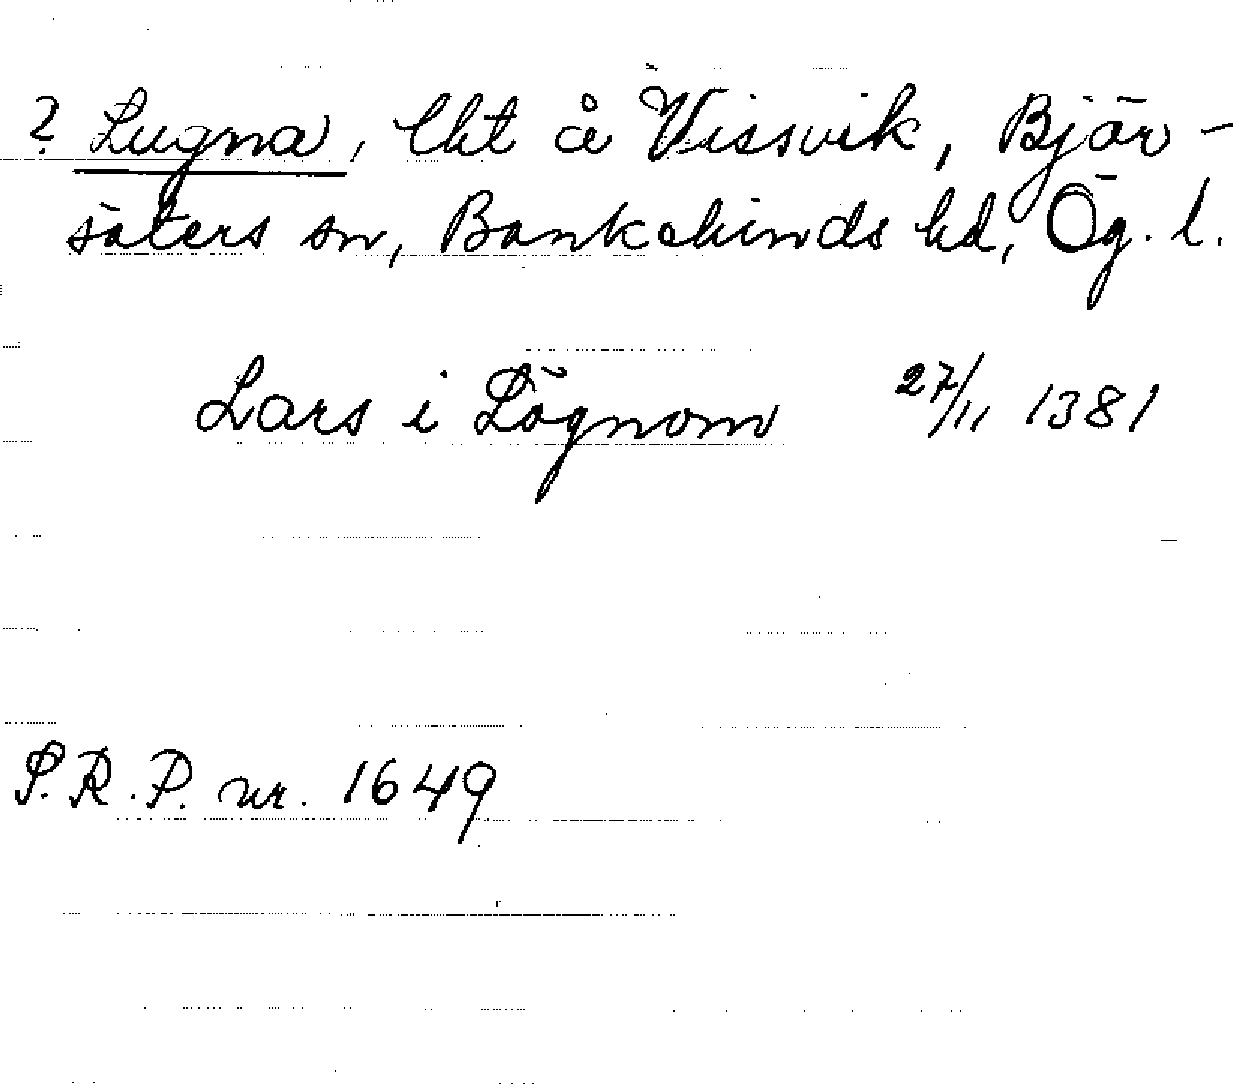 ? Lugna, lht å Vissvik, Bjär-
säters sn, Bankekinds hd, Ög. l.
Lars i Lögnom 27/11 1381
S.R.P. nr. 1649